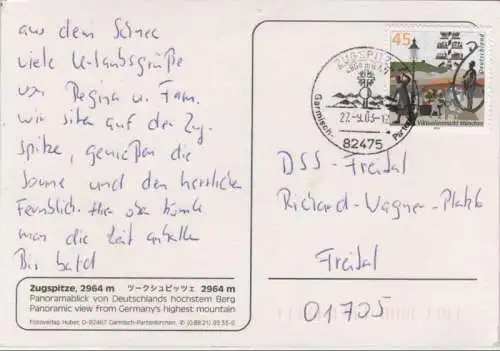 aus dem Schnee
viele Urlaubsgrüße
von Regina u. Fam.
wir sitzen auf der Zug-
spitze, genießen die
Sonne und den herrlichen
Fernblick. Hier oben könnte
man die Zeit anhalten
Bis bald
Zugspitze, 2964 m ツークシュピッツェ 2964 m
Panoramablick von Deutschlands höchstem Berg
Panoramic view from Germany's highest mountain
Fotoverlag Huber, D-82467 Garmisch-Partenkirchen, ©
45
Deutschland
Viktualienmarkt München
ZUGSPITZE
2964 m
Garmisch-Parten
27.-9.03-12
82475
DSS-Freital
Richard-Wagner-Platz 6
Freital
01705